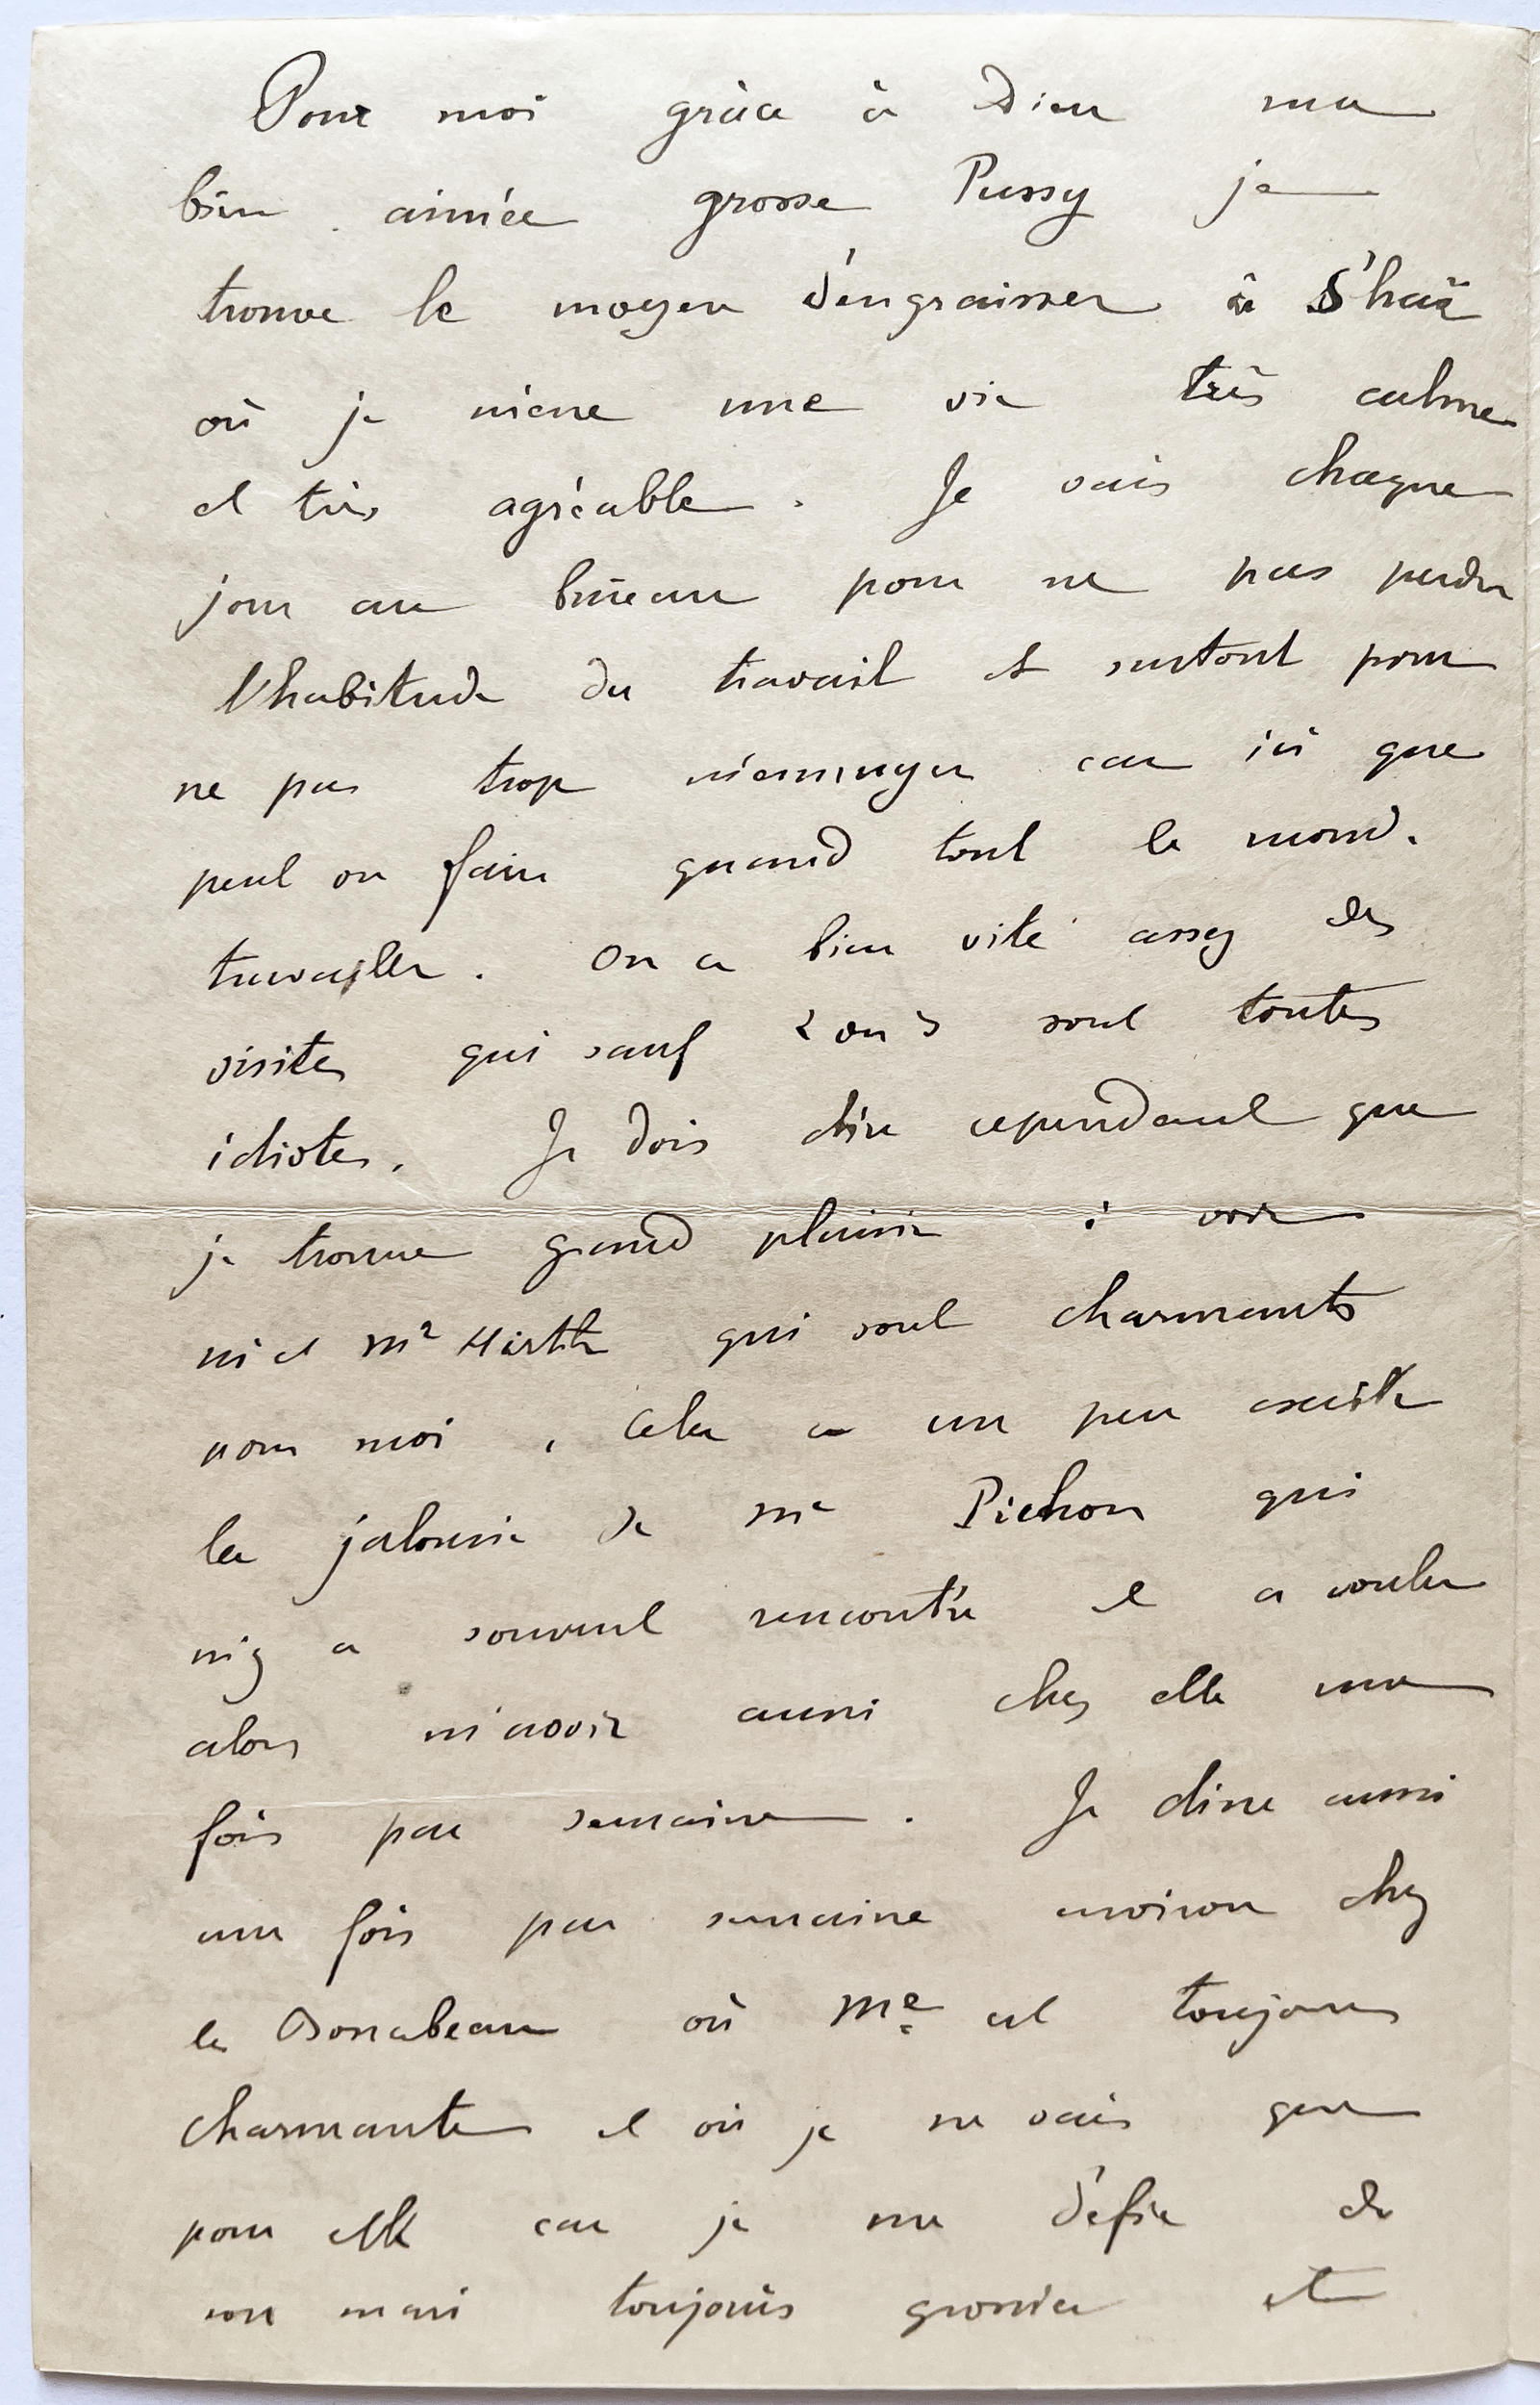 Pour moi grâce à Dieu ma
bien aimée grosse Pussy je
trouve le moyen d'engraisser à S'haï
où je mène une vie très calme
et très agréable. Je vais chaque
jour au bureau pour ne pas perdre
l'habitude du travail et surtout pour
ne pas trop m'ennuyer car ici que
peut on faire quand tout le monde
travaille. On a bien vite assez des
visites qui sauf 2 ou 3 sont toutes
idiotes. Je dois dire cependant que
je trouve grand plaisir à voir
mr et me qui sont charmants
pour moi, cela a un peu excité
la jalousie de me Pichon qui
m'y a souvent rencontré et a voulu
alors m'avoir aussi chez elle une
fois par semaine. Je dine aussi
une fois par semaine environ chez
les où Me est toujours
charmante et où je ne vais que
pour elle car je me défie de
son mari toujours grossier et